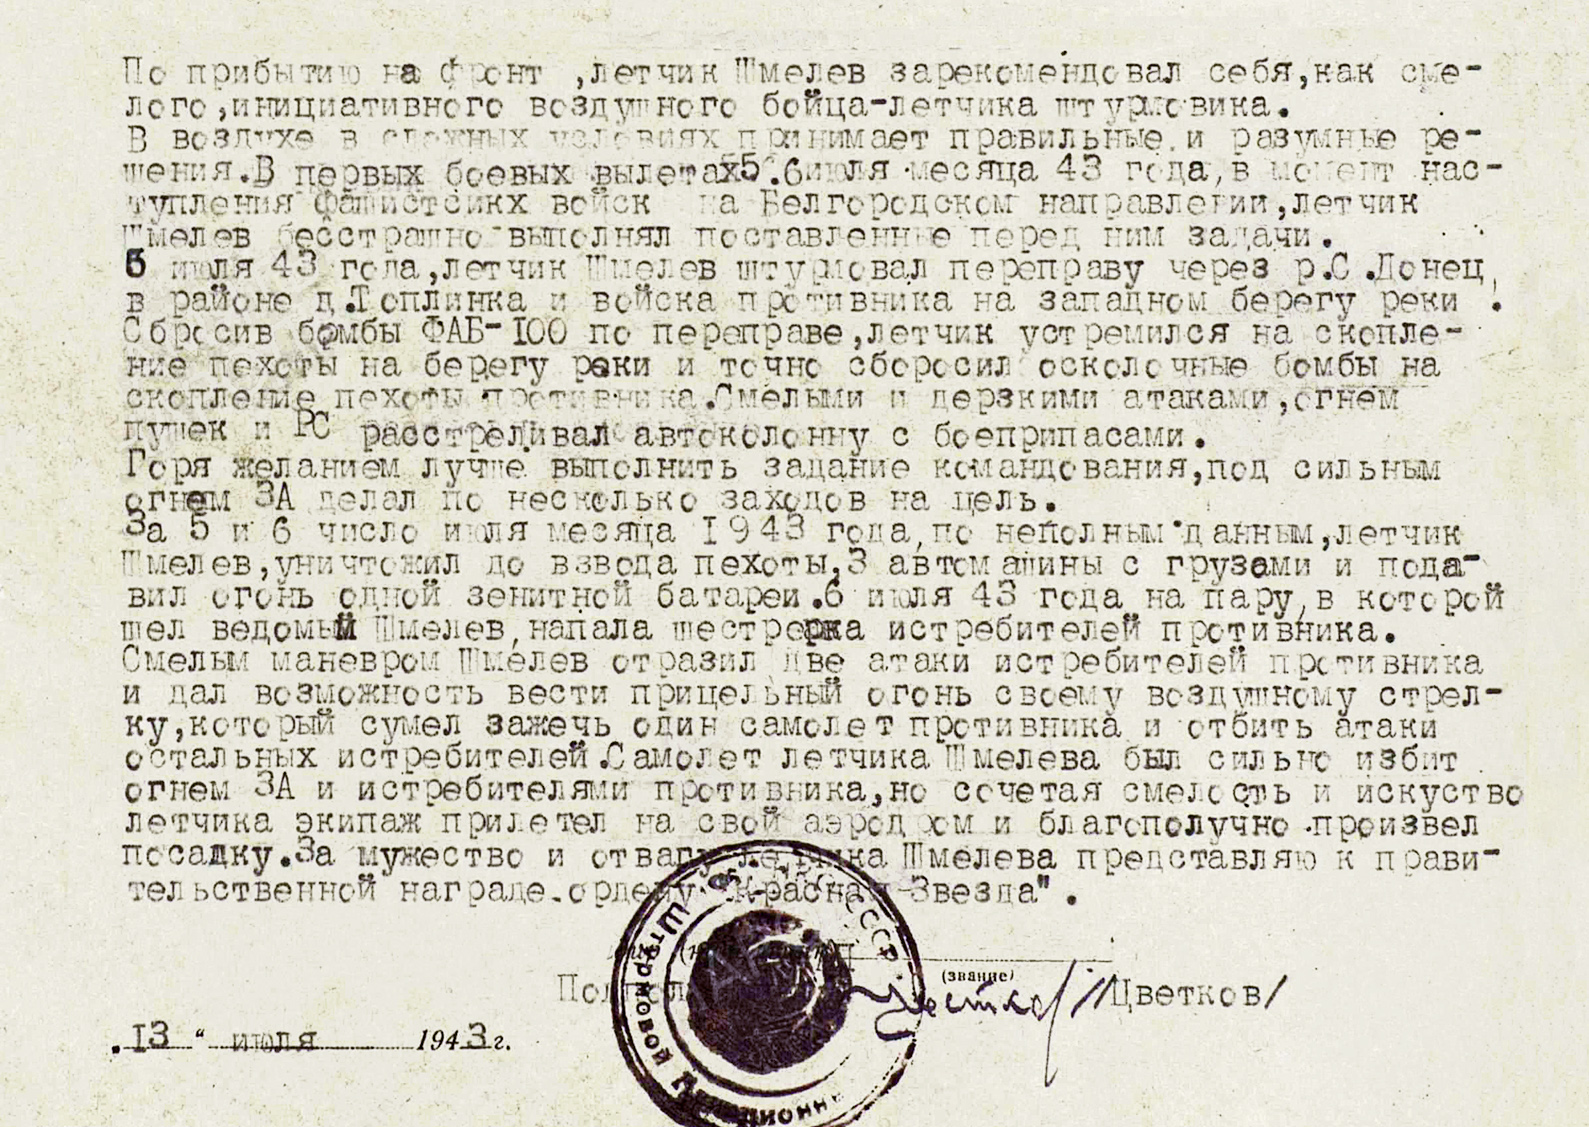 По прибытию на фронт ,летчик Шмелев зарекомендовал себя,как сме-
лого,инициативного воздушного бойца-летчика штурмовика.
В воздухе в сложных условиях принимает правильные и разумные ре-
шения.В первых боевых вылетах5.6июля месяца 43 года,в момент нас-
тупления фашистсикх войск на Белгородском направлении,летчик
Шмелев бесстрашно выполнял поставленные перед ним задачи.
5 июля 43 года,летчик Шмелев штурмовал переправу через р.С.Донец,
в районе д.Топлинка и войска противника на западном берегу реки .
Сбросив бомбы ФАБ-100 по переправе,летчик устремился на скопле-
ние пехоты на берегу реки и точно сборосил осколочные бомбы на
скопление пехоты противника.Смелыми и дерзкими атаками,огнем
пушек и РС расстреливал автоколонну с боеприпасами.
Горя желанием лучше выполнить задание командования,под сильным
огнем ЗА делал по несколько заходов на цель.
За 5 и 6 число июля месяца 1943 года,по неполным данным,летчик
Шмелев,уничтожил до взвода пехоты,3 автомашины с грузами и пода-
вил огонь одной зенитной батареи.6 июля 43 года на пару,в которой
шел ведомый Шмелев,напала шестрерка истребителей противника.
Смелым маневром Шмелев отразил две атаки истребителей противника
и дал возможность вести прицельный огонь своему воздушному стрел-
ку,который сумел зажечь один самолет противника и отбить атаки
остальных истребителей.Самолет летчика Шмелева был сильно избит
огнем ЗА и истребителями противника,но сочетая смелость и искуство
летчика экипаж прилетел на свой аэродром и благополучно произвел
посадку.За мужество и отвагу летчика Шмелева представляю к прави-
тельственной награде.ордену "Красная Звезда".
СССР
Штурмовой Авиационн
(звание)
Цветков /Цветков/
„13 “ июля 1943г.